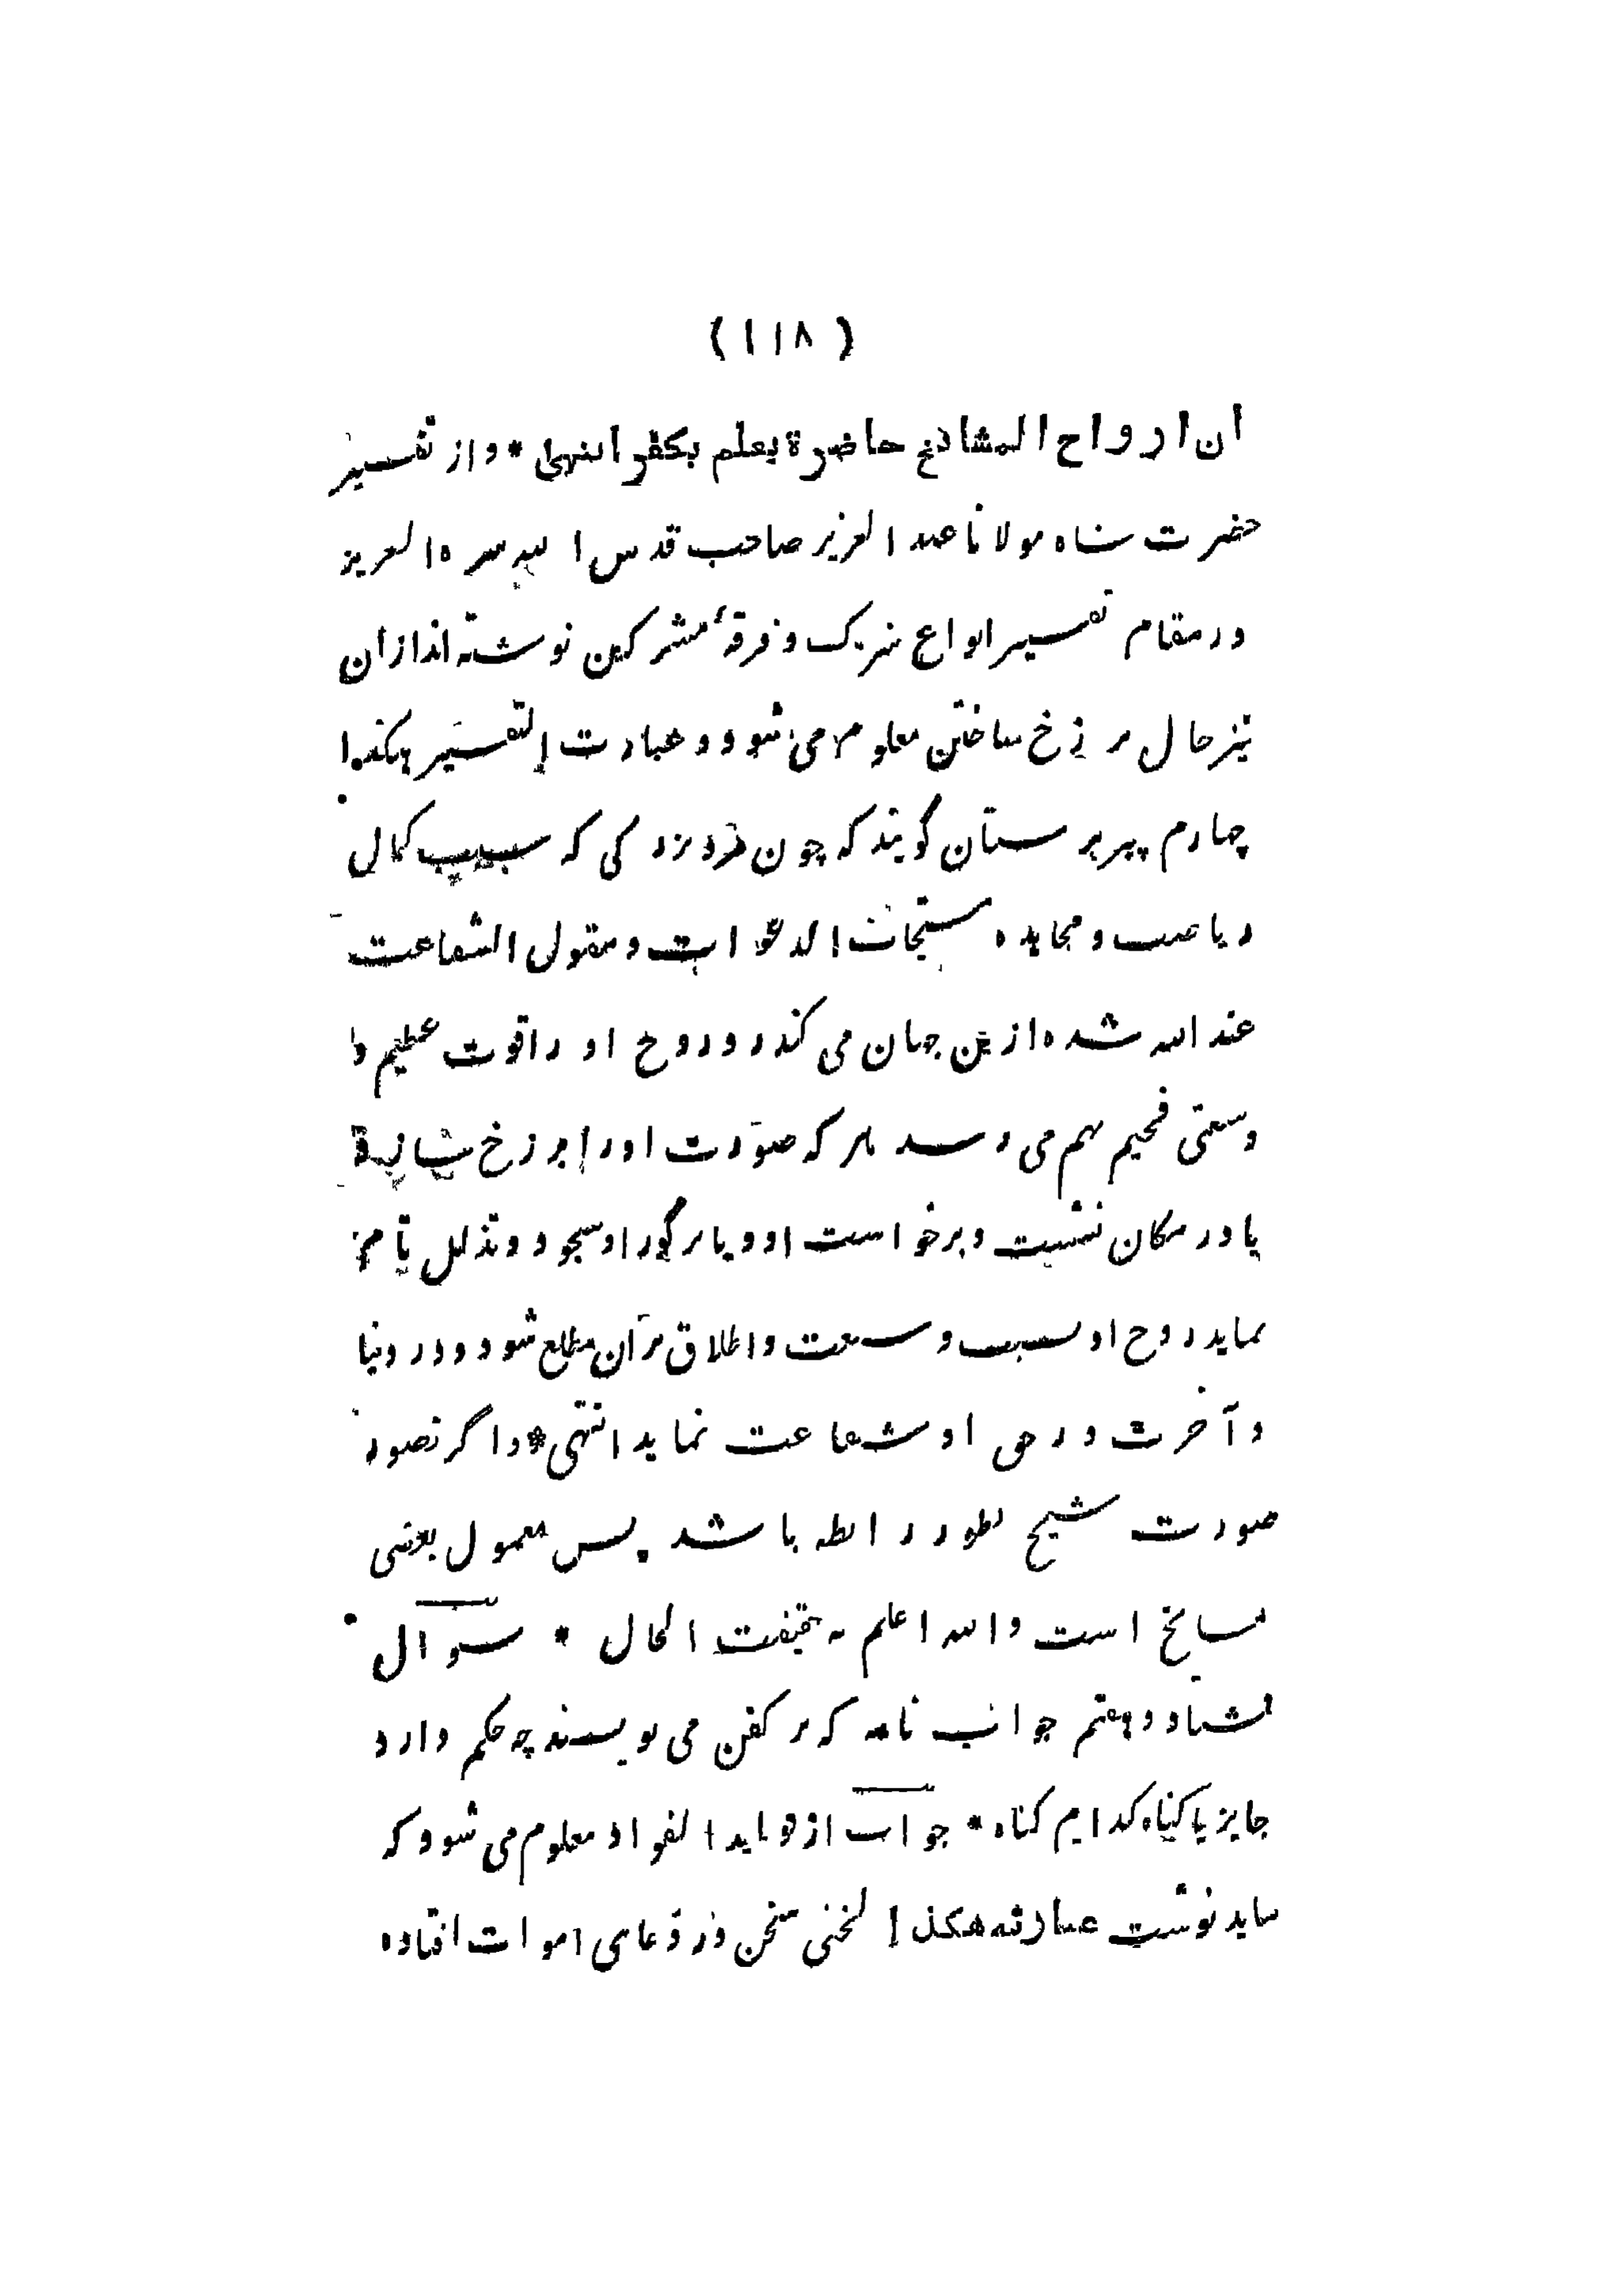 ( ۱۱۸ )
ان ارواح المشائخ حاضرة يعلم بكفر انتهى * و از تفسیر
حضرت شاه مولانا عبد العزیز صاحب قدس الله سره العزیز
در مقام تفسیر انواع شرک و فرقهٔ مشرکین نوشته اند ازان
نیز حال برزخ ساختن معلوم می شود و عبارت التفسیر هکذا
چهارم پیر پرستان گویند که چون مرد بزرگی که بسبب کمال
ریاضت و مجاهده مستجاب الدعوات و مقبول الشفاعت
عند الله شده ازین جهان می گذرد و روح او را قوت عظیم و
وسعتی فخیم بهم می رسد هر که صورت او را برزخ سازد
یا در مکان نشست و برخاست او و یا بر گور او سجود و تذلل تام
نماید روح او بسبب وسعت و اطلاق بر آن مطلع شود و در دنیا
و آخرت در حق او شفاعت نماید انتهی * و اگر تصور
صورت شیخ بطور رابطه باشد پس معمول بعضی
مشایخ است والله اعلم به حقیقت الحال * سوال
هشتاد و هفتم جواب نامه که بر کفن می نویسند چه حکم دارد
جایز یا گناه کدام گناه * جواب از فواید الفواد معلوم می شود که
باید نوشت عبارته هكذا لختی سخن در دعای اموات افتاده